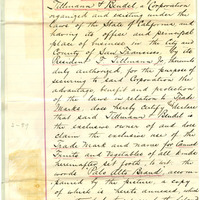 Tillmann & Bendel a Corporation
organized and existing under the
Laws of the State of California, and
having its office and principal
place of business in the City and
County of San Francisco, By its
President F. Tillmann Jr. hereunto
duly authorized, for the purpose
of securing to said Corporation the
advantage, benefit and protection
of the laws in relation to Trade
Marks does hereby certify & declare
that said Tillmann & Bendel is
the exclusive owner of and does
claim the exclusive use of the
Trade Mark and name for Canned
Fruits and Vegetables of all kinds
hereinafter set forth to wit the
words "Palo Alto Brand", accom-
panied by the picture a copy
of which is hereto annexed, which